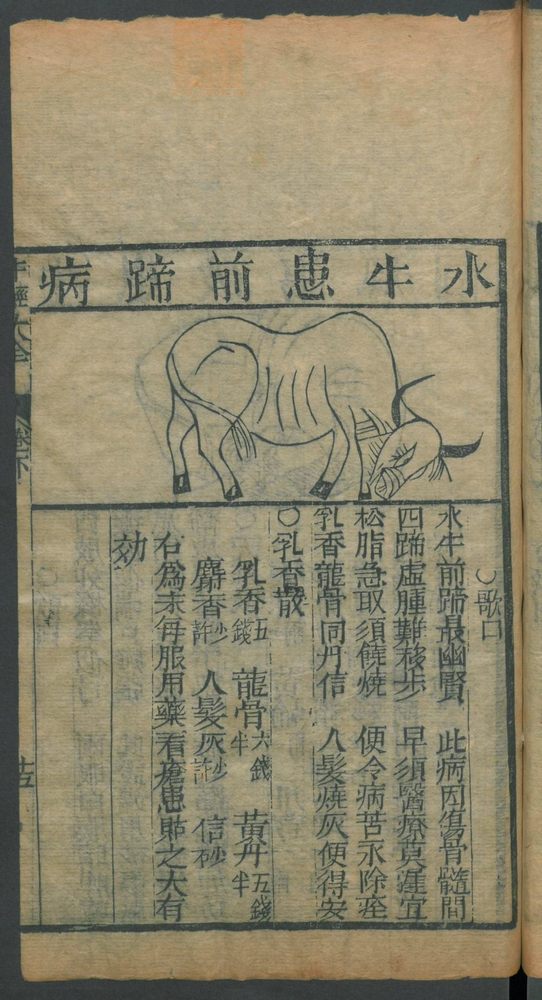 水牛患前蹄病
○歌曰
水牛前蹄最幽賢 此病因傷骨髓間
四蹄虛腫難移步 早須醫療莫遲宜
松脂急取須饒燒 便令病苦永除痊
乳香龍骨同丹信 人髮燒灰便得安
○乳香散
乳香五錢 龍骨六錢半 黃丹五錢半
麝香少許 人髮灰少許 信砂
右爲末每服用藥看瘡患貼之大有
効
牛經大全 卷下
十五